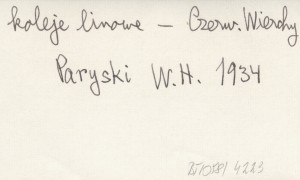 koleje linowe – Czerw. Wierchy
Paryski W.H. 1934
4223